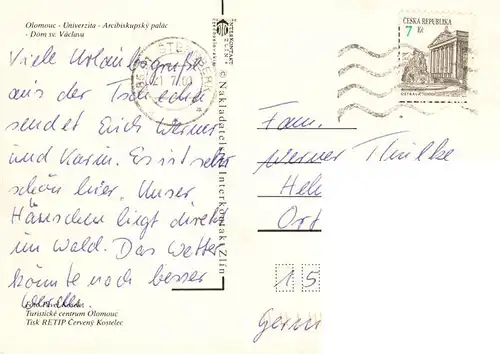 Olomouc - Univerzita - Arcibiskupský palác
- Dom sv. Václava
Viele Urlaubsgrüße
aus der Tschechei
sendet Euch Werner
und Karin. Es ist sehr
schön hier. Unser
Häuschen liegt direkt
im Wald. Das Wetter
könnte noch besser
werden.
Turistické centrum Olomouc
Tisk RETIP Červený Kostelec
INTERKONTAKT
ZLÍN
© Nakladatelství Interkontakt Zlín
ČESKÁ REPUBLIKA
7 Kč
Fam.
Werner Thulke
Hel
Ort
15
Germ